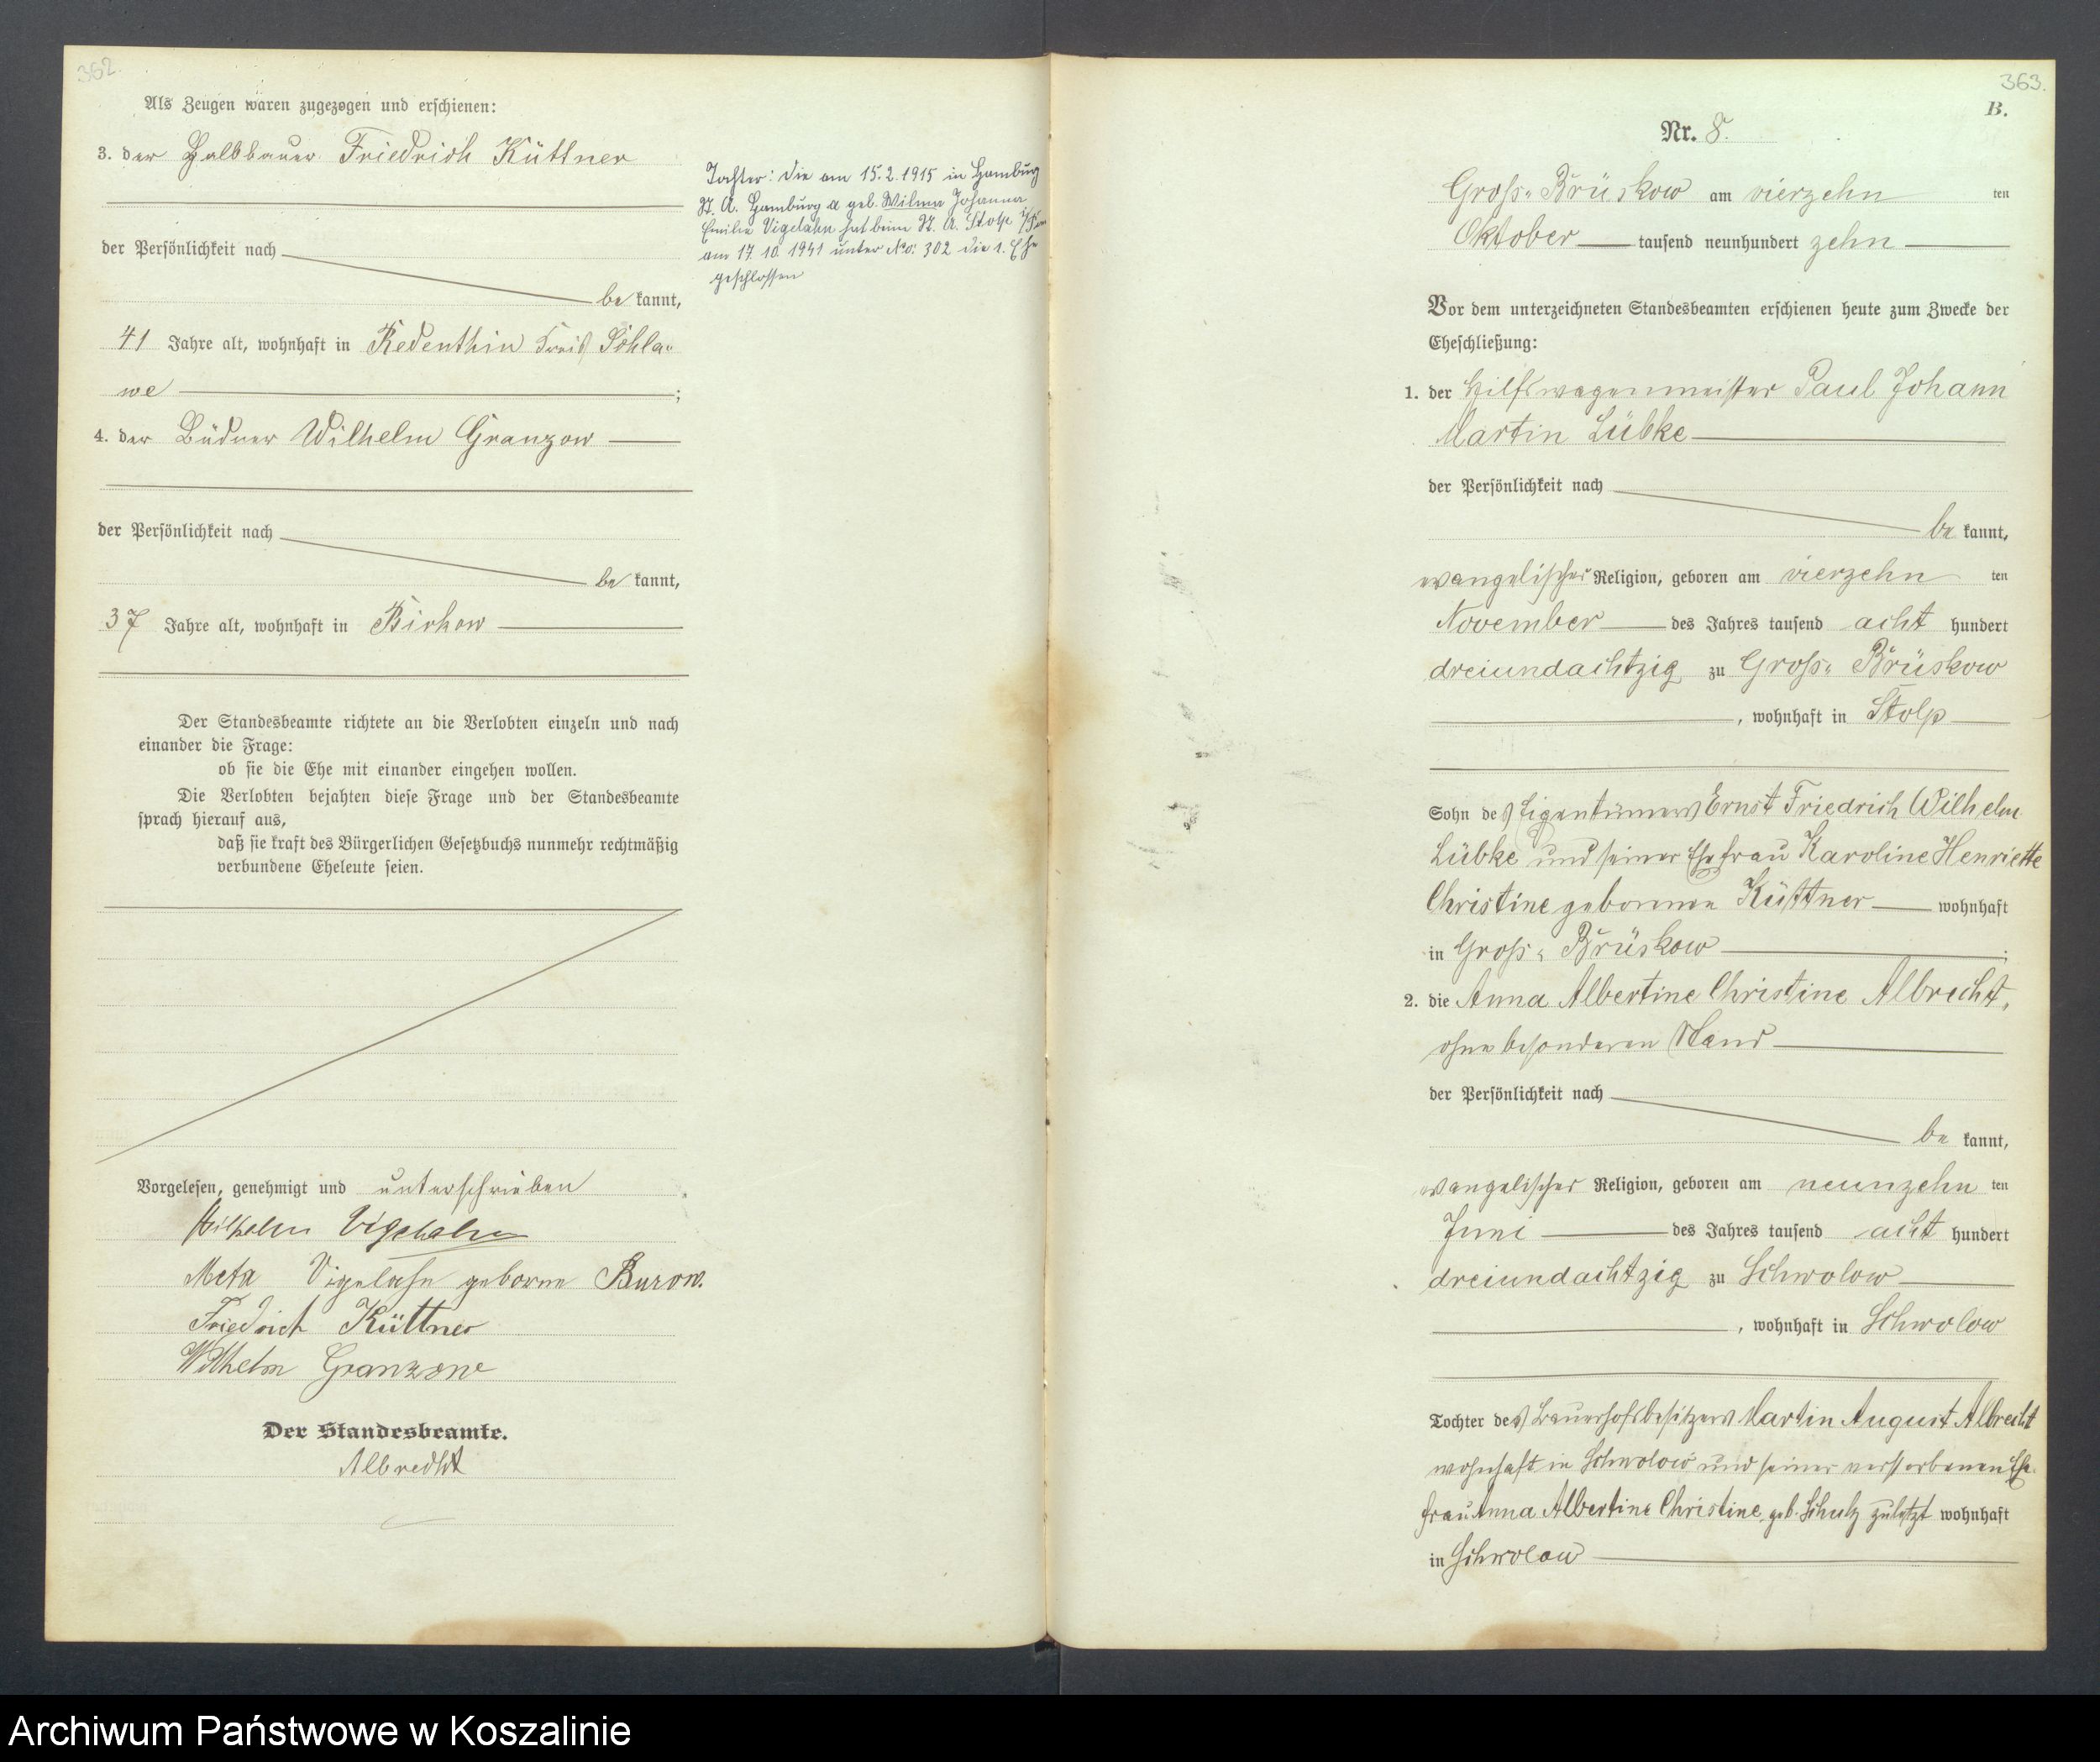 362.
Als Zeugen waren zugezogen und erschienen:
3. der Halbbauer Friedrich Küttner
der Persönlichkeit nach
be kannt,
41 Jahre alt, wohnhaft in Redenthin Kreis Schla-
we ;
4. der Büdner Wilhelm Granzow
der Persönlichkeit nach
be kannt,
37 Jahre alt, wohnhaft in Birkow
Der Standesbeamte richtete an die Verlobten einzeln und nach
einander die Frage:
ob sie die Ehe mit einander eingehen wollen.
Die Verlobten bejahten diese Frage und der Standesbeamte
sprach hierauf aus,
daß sie kraft des Bürgerlichen Gesetzbuchs nunmehr rechtmäßig
verbundene Eheleute seien.
Vorgelesen, genehmigt und unterschrieben
Wilhelm Vigelahn
Meta Vigelahn geborne Burow.
Friedrich Küttner
Wilhelm Granzow
Der Standesbeamte.
Albrecht
Tochter: die am 15.2.1915 in Hamburg
St. A. Hamburg a geb. Wilma Johanna
Emilie Vigelahn hat beim St. A. Stolp i/Pom
am 17.10.1941 unter No: 302 die 1. Ehe
geschlossen
363.
B.
Nr. 8.
Groß-Brüskow am vierzehn ten
Oktober tausend neunhundert zehn
Vor dem unterzeichneten Standesbeamten erschienen heute zum Zwecke der
Eheschließung:
1. der Hilfswagenmeister Paul Johann
Martin Lübke
der Persönlichkeit nach
be kannt,
evangelischer Religion, geboren am vierzehn ten
November des Jahres tausend acht hundert
dreiundachtzig zu Groß-Brüskow
, wohnhaft in Stolp
Sohn des Eigentümers Ernst Friedrich Wilhelm
Lübke und seiner Ehefrau Karoline Henriette
Christine geborenen Küttner wohnhaft
in Groß-Brüskow ;
2. die Anna Albertine Christine Albrecht,
ohne besonderen Stand
der Persönlichkeit nach
be kannt,
evangelischer Religion, geboren am neunzehn ten
Juni des Jahres tausend acht hundert
dreiundachtzig zu Schwolow
, wohnhaft in Schwolow
Tochter des Bauerhofsbesitzers Martin August Albrecht
wohnhaft in Schwolow und seiner verstorbenen Ehe-
frau Anna Albertine Christine geb. Schulz zuletzt wohnhaft
in Schwolow
Archiwum Państwowe w Koszalinie